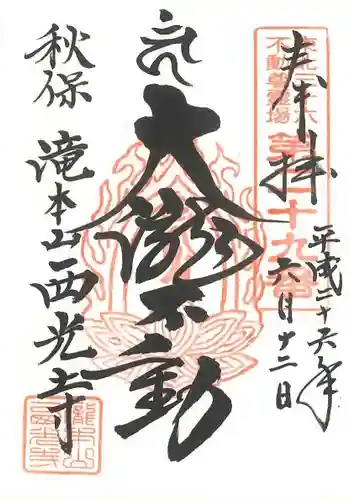 奉拝
東北三十六
不動尊霊場
第二十九番
平成二十六年
六月十二日
大滝不動
秋保
滝本山西光寺